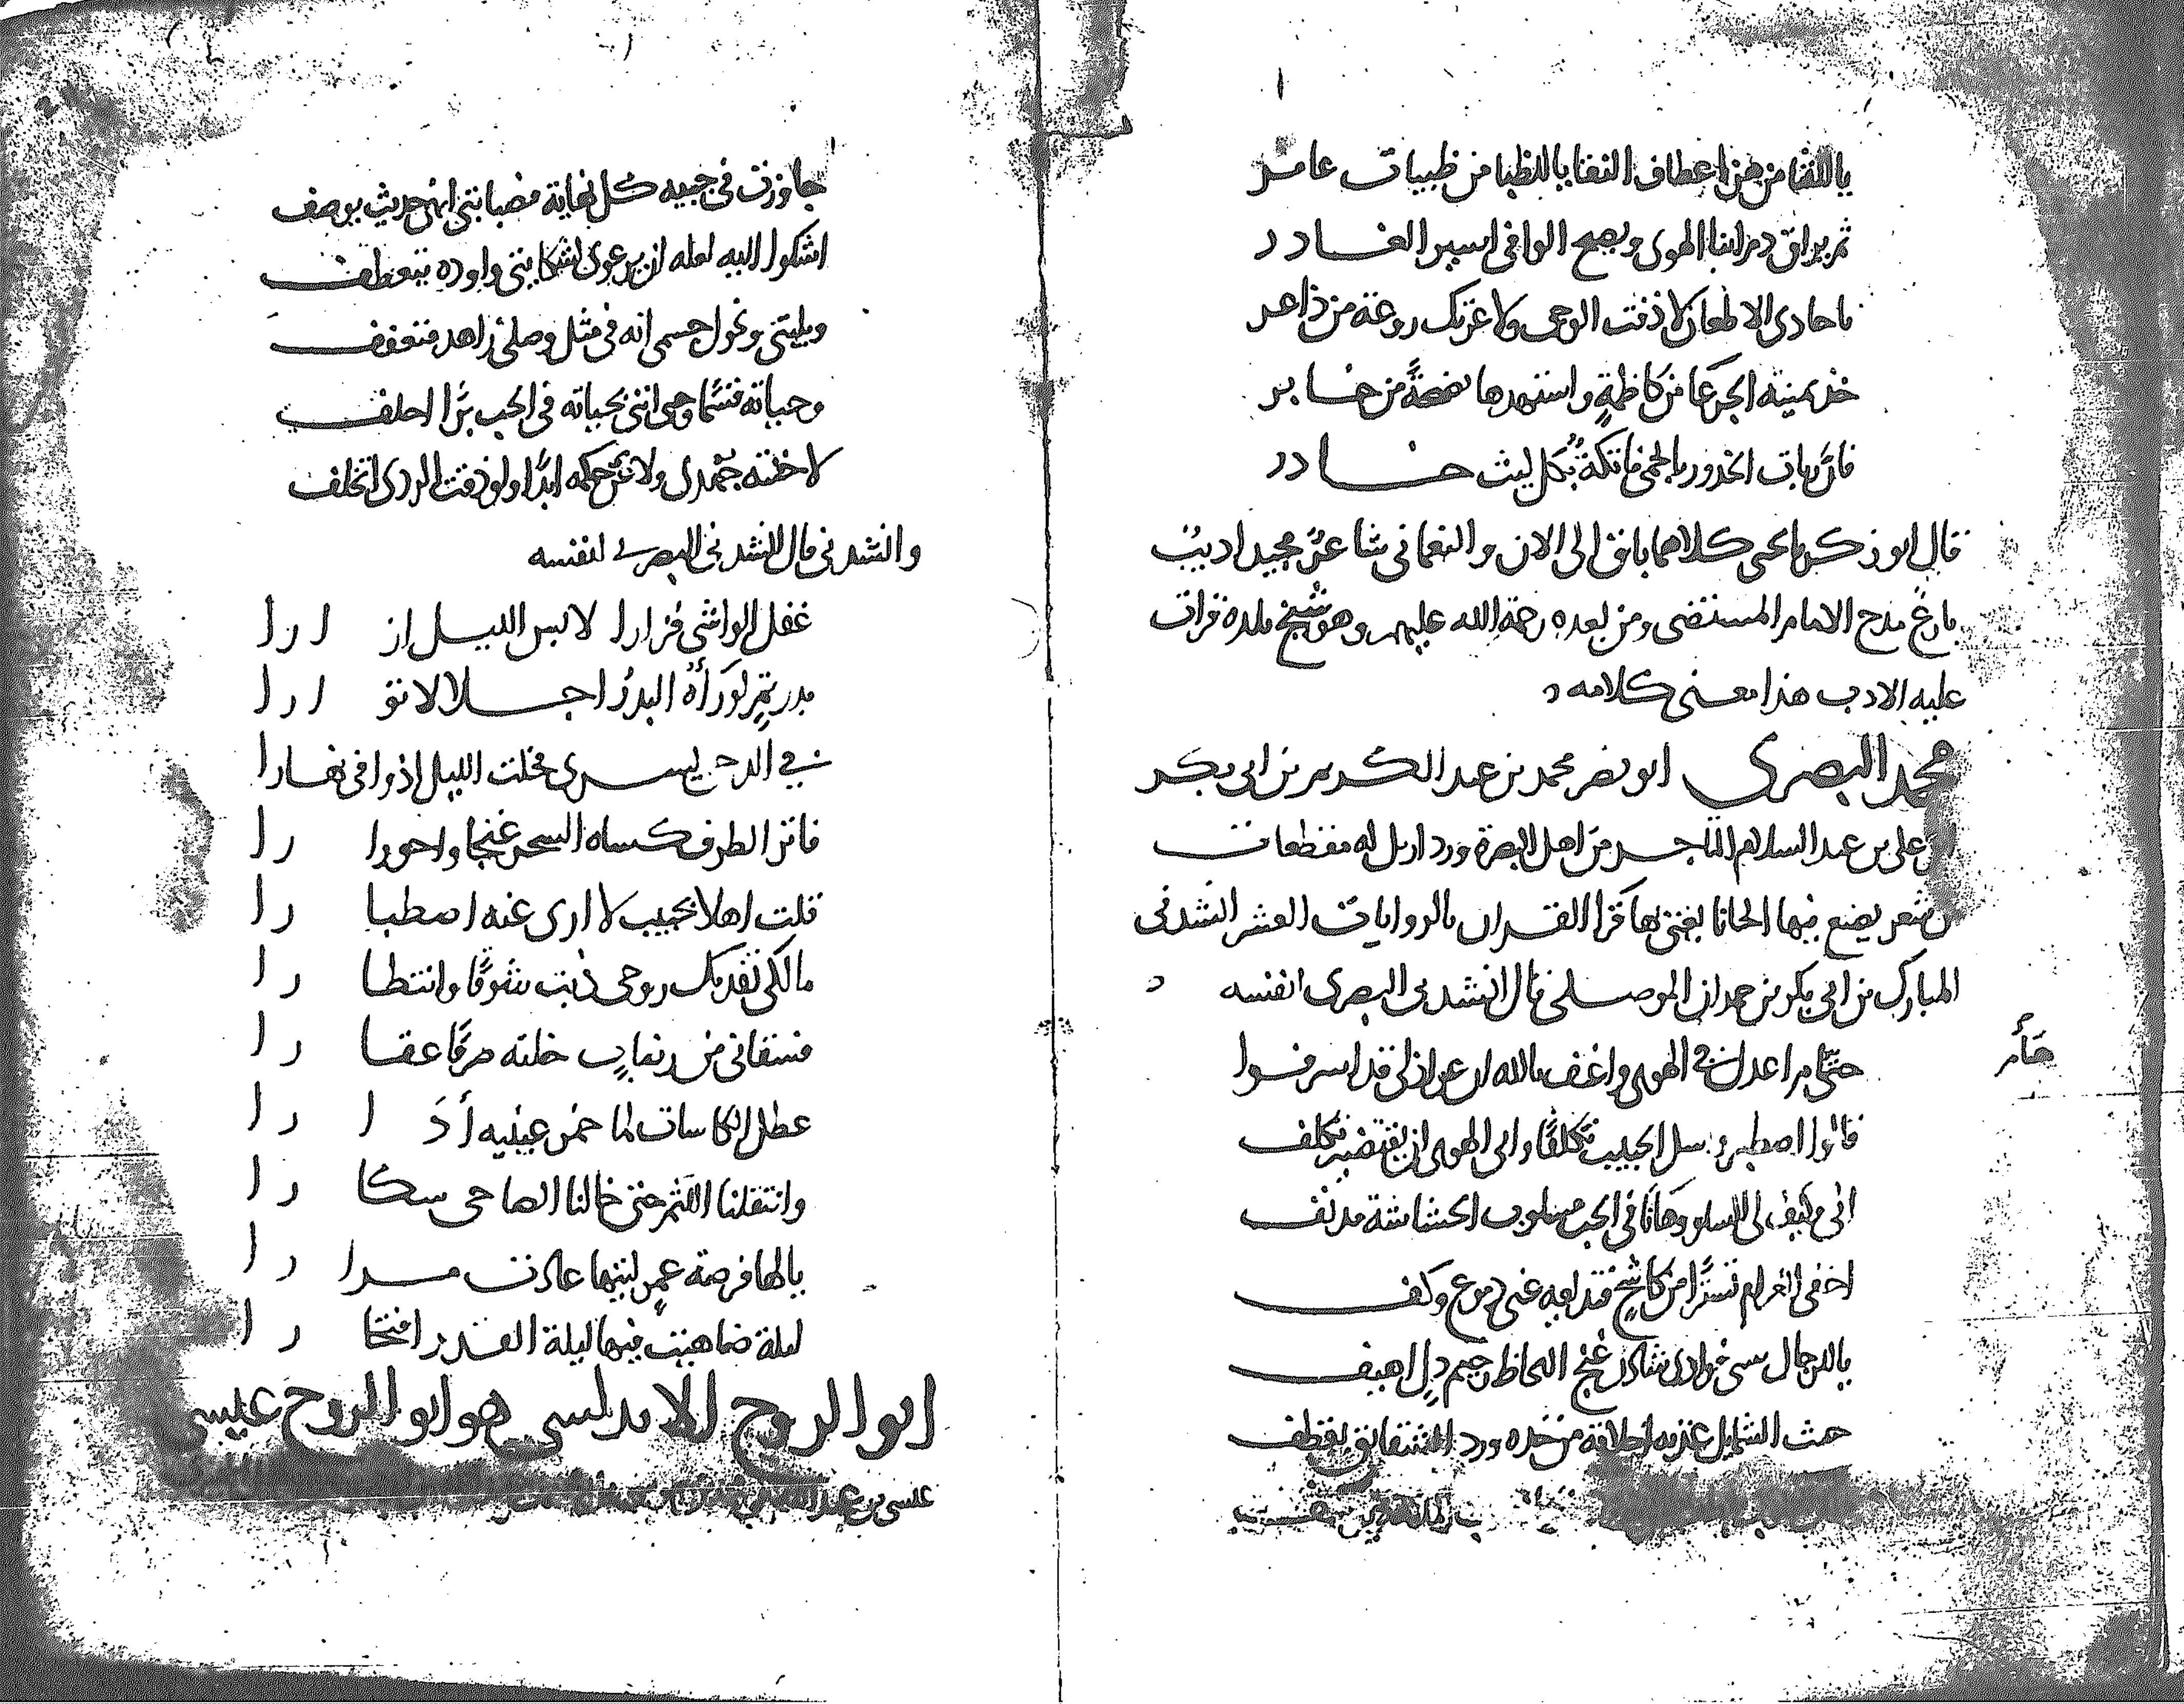 ياللنقا من هز اعطاف النقا ياللظبا من ظبيات عامر
ثم يراق دم ابنا الهوى ويصبح الوافي اسير الغادر
ياحادي الاظعان لا ذقت الوجى ولا عرتك روعة من ذاعر
خذ يمينه الجرعا من كاظمةٍ واستهدها نفحةً من حاير
فان ربات الخدور بالحمى فاتكةٌ بكل ليث خادر
قال ابو زكريا يحيى كلاهما باق الى الان والنعماني شاعرٌ مجيد اديبٌ
بارع مدح الامام المستضى ومن بعده رحمة الله عليهم وهو شيخ بلده قرات
عليه الادب هذا معنى كلامه
محمد البصري ابو نصر محمد بن عبد الكريم بن ابي بكر
بن علي بن عبد السلام التاجر من اهل البصرة ورد اربل له مقطعات
من شعر يصنع فيها الحانا يغني بها قرا القران بالروايات العشر انشدني
المبارك بن ابي بكر بن حمدان الموصلي قال انشدني البصري لنفسه
حتام اعذل في الهوى واعنف بالله ان عواذلي قد اسرفوا
قالوا اصطبر وسل الحبيب تكلفًا وابى الهوى ان يقتضيه تكلف
انى وكيف لي السلو وهانا في الحب مسلوب الحشاشة مدنف
اخفي الغرام تسترًا من كاشحٍ فتذيعه عني دموع وكف
ياللرجال سبى فوادي شادن غنج اللحاظ رخيم دلٍ اهيف
خنث الشمايل عذبه اخلاقه من خده ورد الشقايق يقطف
جاوزت في حبيه كل نهاية فصبابتي ابهى حديث يوصف
اشكوا اليه لعله ان يرعوي لشكايتي واوده يتعطف
وبليتي ونحول جسمي انه في مثل وصلي زاهد متعفف
وحياته قسمًا وحسبي انني بحياته في الحب برًا احلف
لا خنته جهدي ولا عن حكمه ابدًا ولو ذقت الردى اتخلف
وانشدني قال انشدني البصري لنفسه
غفل الواشي فزارا لابس الليل ازارا
بدر تمٍ لو رآه البدرُ اجلالا لا توارا
في الدجى يسرى فخلت الليل اذ وافى نهارا
فاتر الطرف كساه السحر غنجا واحورارا
قلت اهلا بحبيب لا ارى عنه اصطبارا
مالكي تفديك روحي ذبت شوقًا وانتظارا
فسقاني من رضابٍ خلته صرفًا عقارا
عطل الكاسات لما خمر عينيه أدارا
وانتقلنا اللثم حتى خالنا الصاحي سكارا
يالها فرصة عمرٍ ليتها عادت مرارا
ليلة ضاهيت فيها ليلة القدر افتخارا
ابو الروح الاندلسي هو ابو الروح عيسى
عيسى بن عبد الله